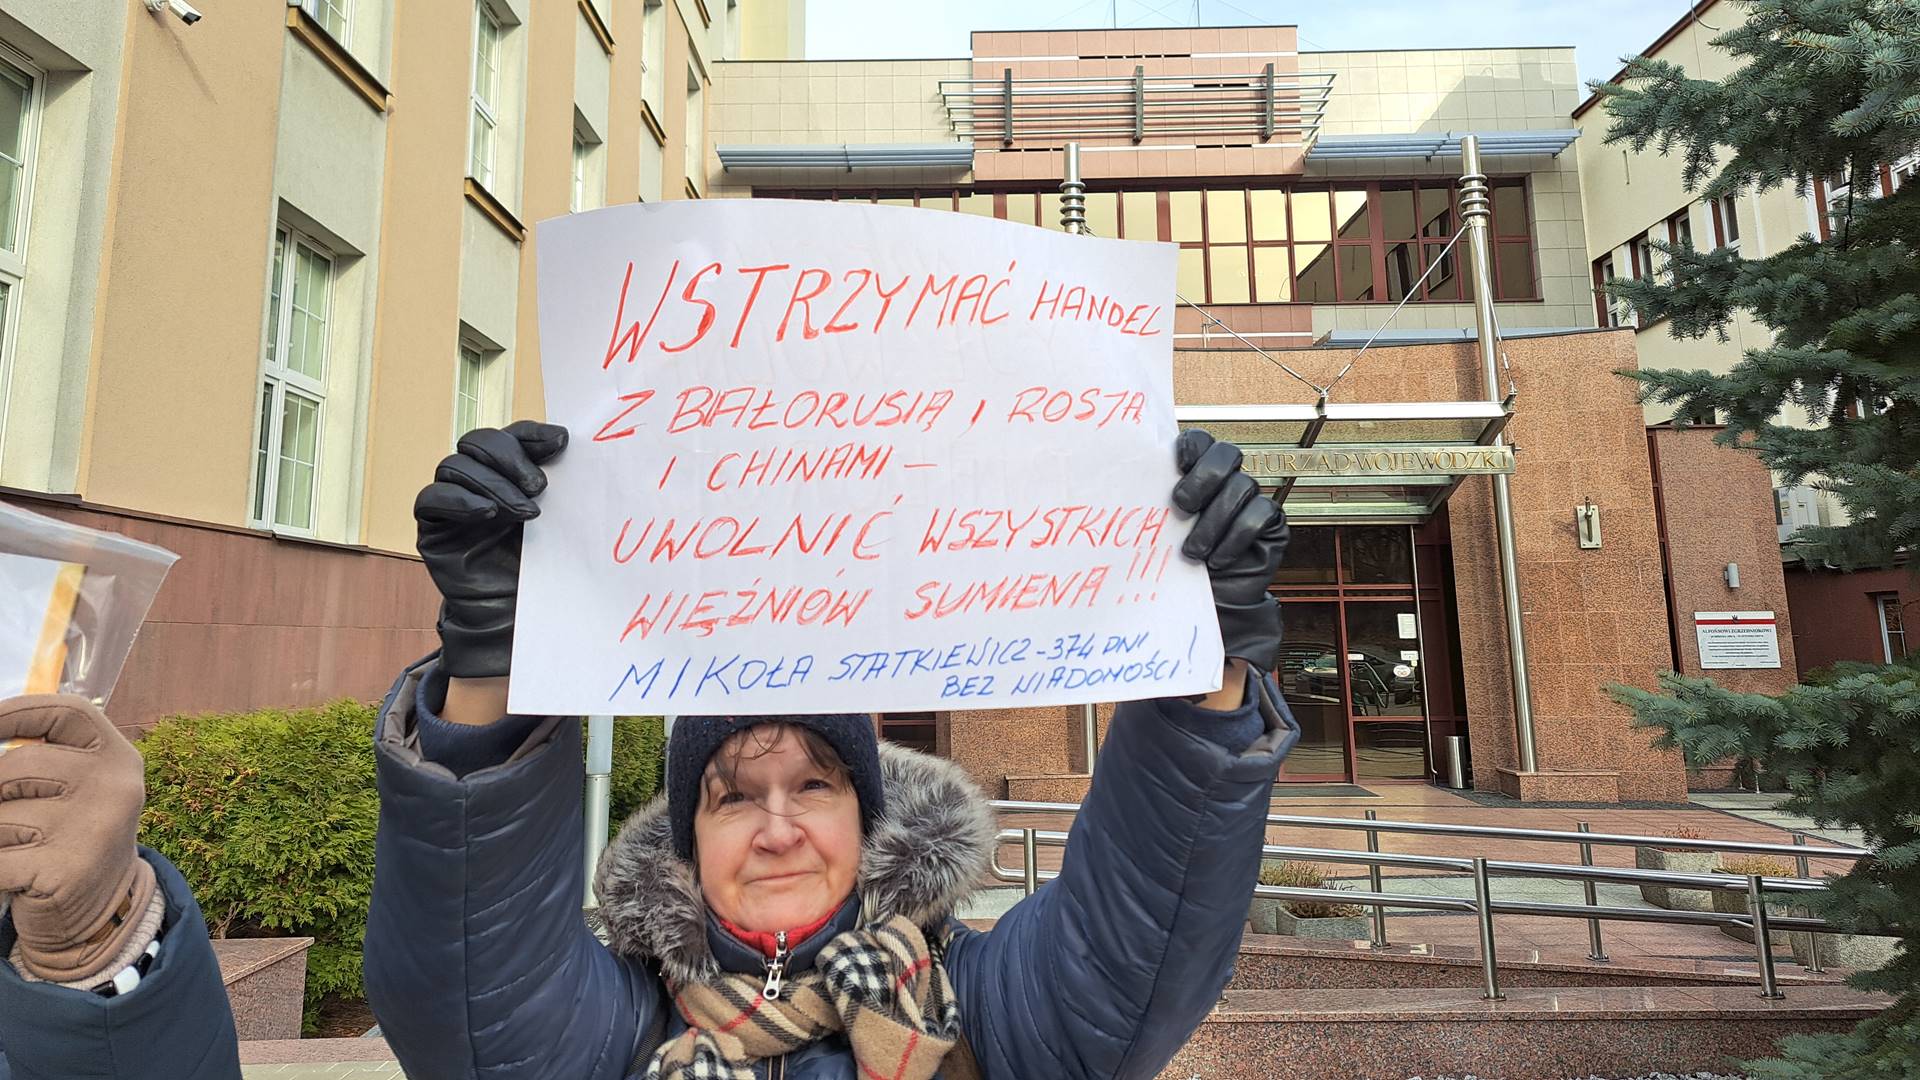 WSTRZYMAĆ HANDEL
Z BIAŁORUSIĄ, ROSJĄ
I CHINAMI –
UWOLNIĆ WSZYSTKICH
WIĘŹNIÓW SUMIENA!!!
MIKOŁA STATKIEWICZ - 374 DNI
BEZ WIADOMOŚCI!
URZĄD WOJEWÓDZKI
ALFONSOWI ZGRZEBNIOKOWI